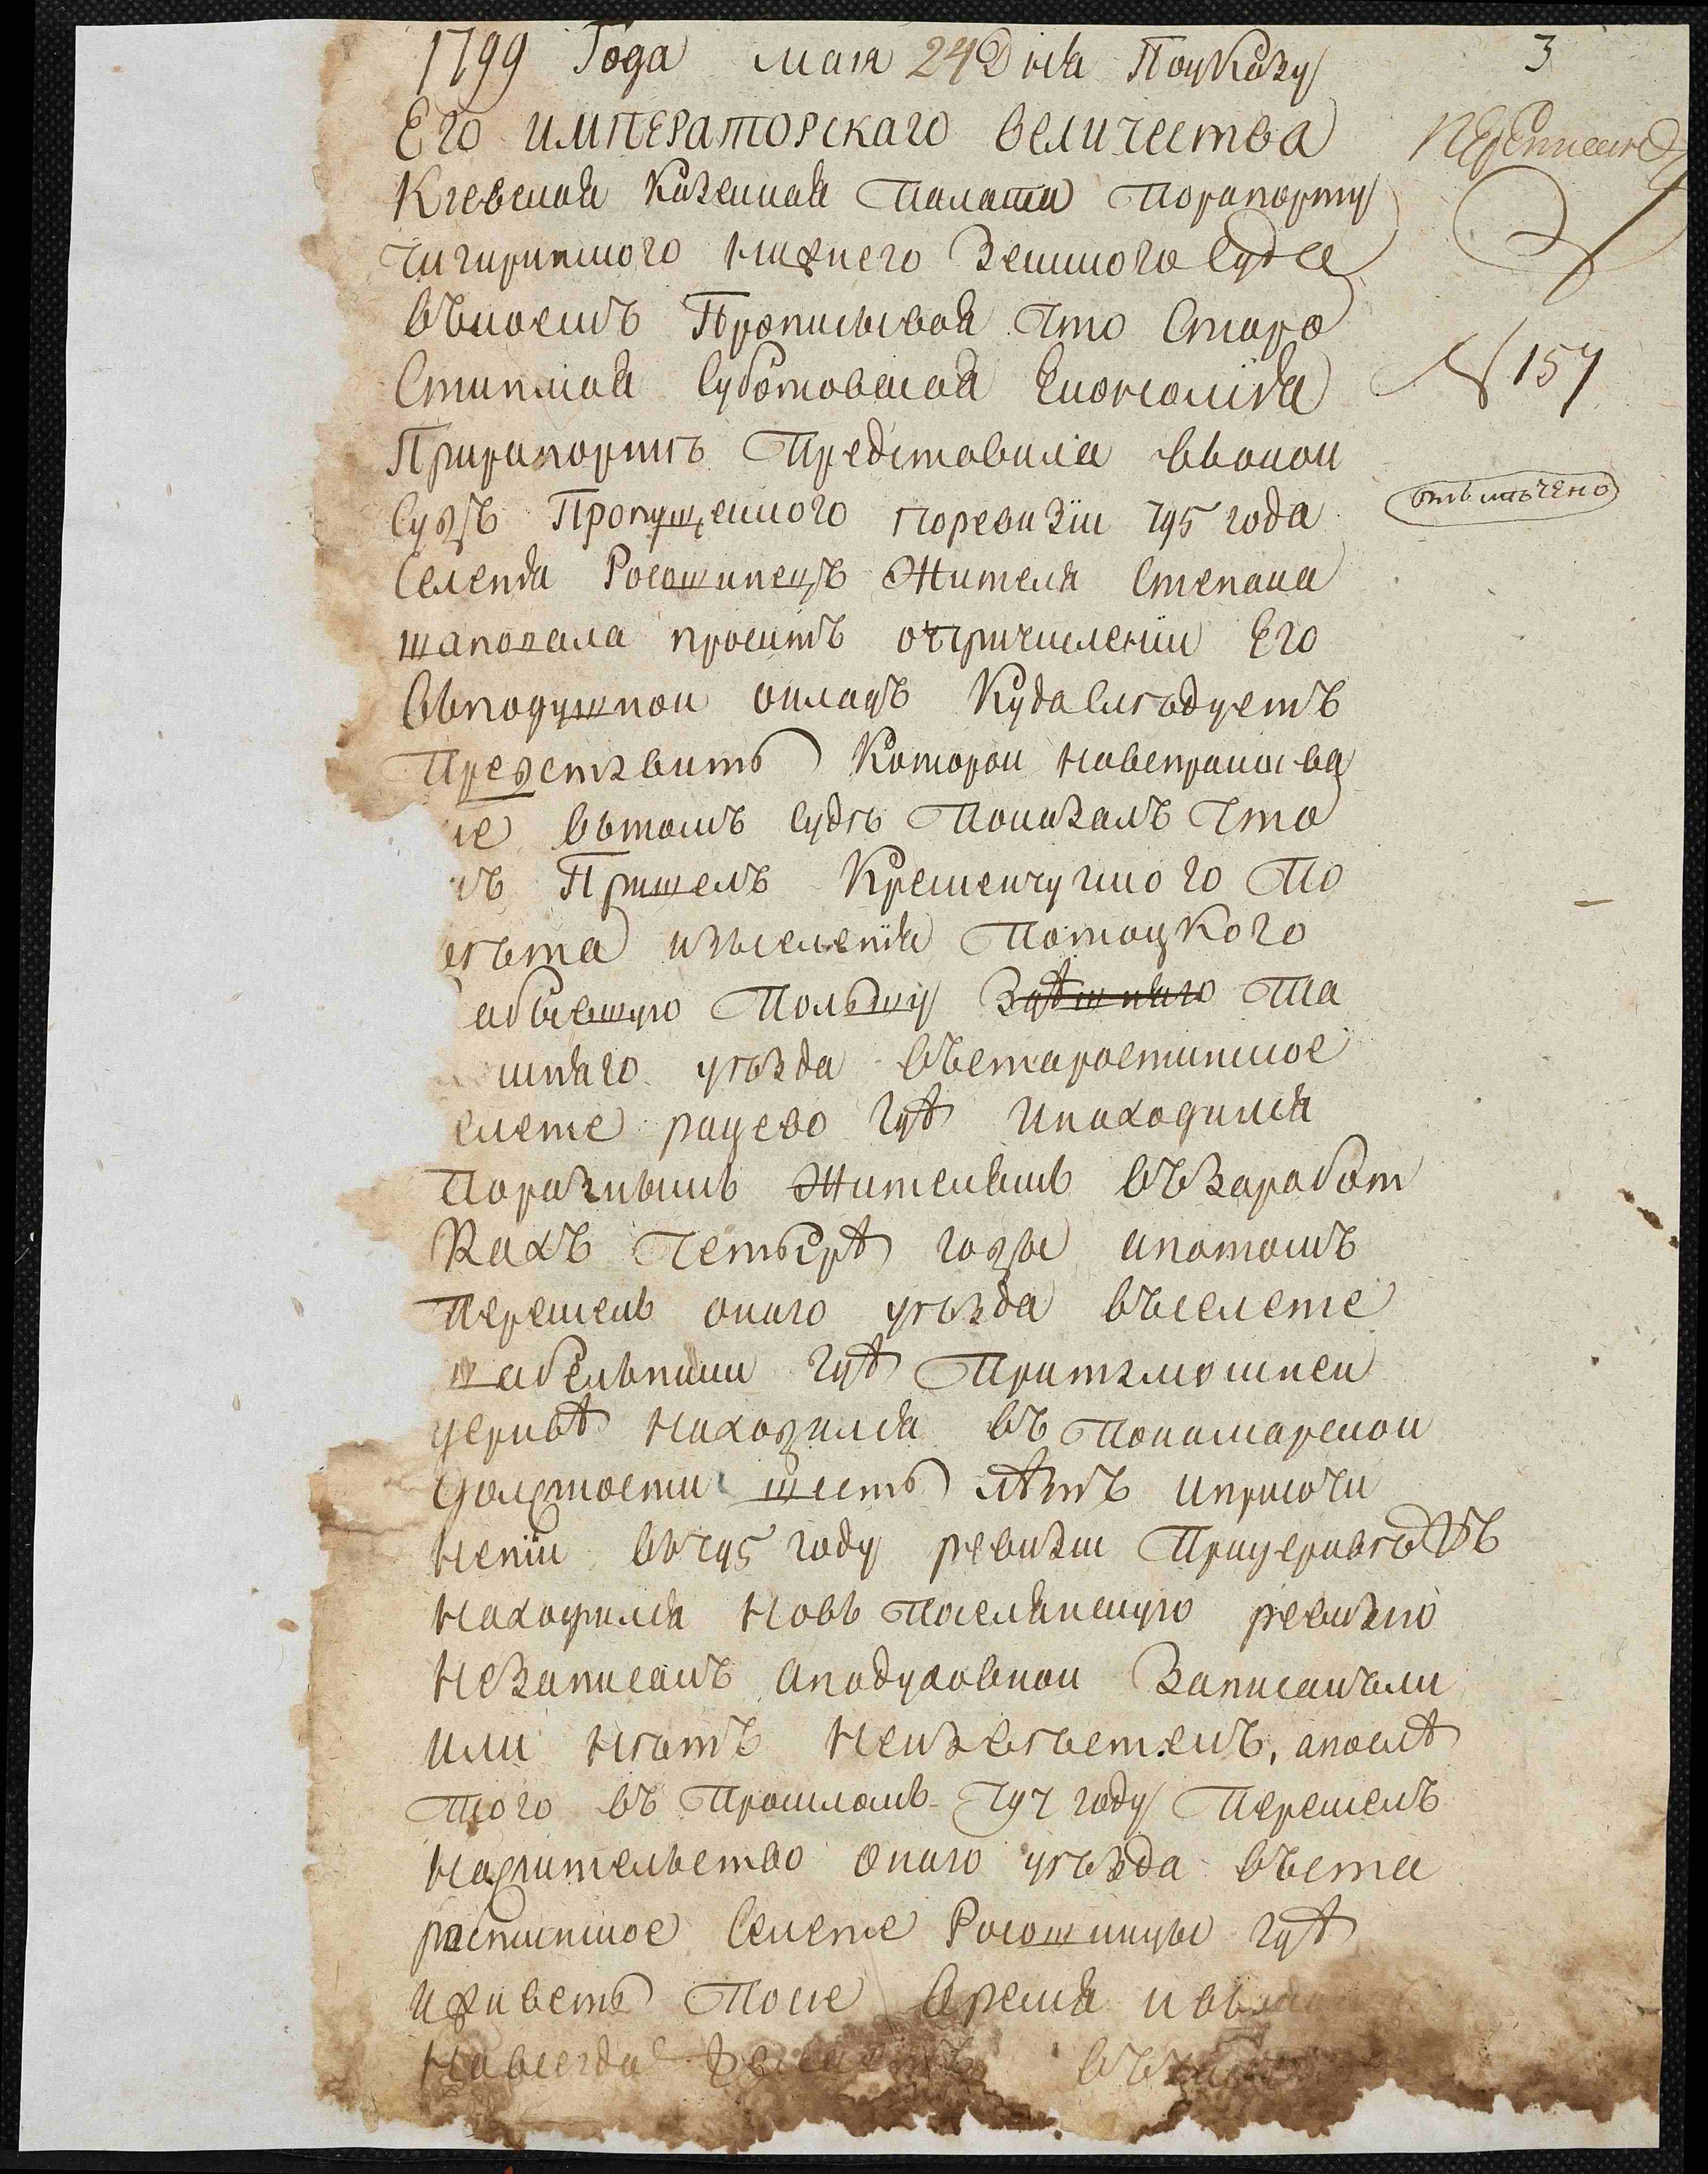 1799 Года мая 24 Дня Поуказу
3
Его императорскаго величества
Киевская Казенная Палата Порапорту
Чигиринского нижнего Земского Суда
въкоемъ Прописывая что Старо
Стинская Суботовская Економїя
Прирапортѣ Представила вьонои
Судъ Пропущенного поревизїи 795 года
Селения Росошинецъ Жителя Степана
шаповала проситъ опричислении Его
Вьподушнои окладъ Куда Слѣдуетъ
Представить Которои навспрашива
ние вьтомъ Судѣ Показалъ что
Пришелъ Кременчугского По
вѣта изьселенїя Потоцкого
абывшую Польшу Здѣшняго Та
шняго уѣзда въстаростинское
селение рацево гдѣ инаходился
Поразнымъ Жителямъ въЗаработ
Кахъ Четырѣ годы апотомъ
Перешелъ онаго уѣзда въселение
шабельники гдѣ Притамошнеи
церквѣ находился въ Понамарскои
Должности шесть лѣтъ иприсочи
нении вь795 году ревизии Прицерквѣ
находился новь Поселянскую ревизию
незаписанъ аподуховнои Записанъли
или нѣтъ неизвѣстенъ, апослѣ
того въ Прошломъ 797 году Перешелъ
нажительство онаго уѣзда въста
ростинское Селение Росошинцы гдѣ
иживетъ Посие время и
навсегда желаетъ
№ 157
отьмѣчено